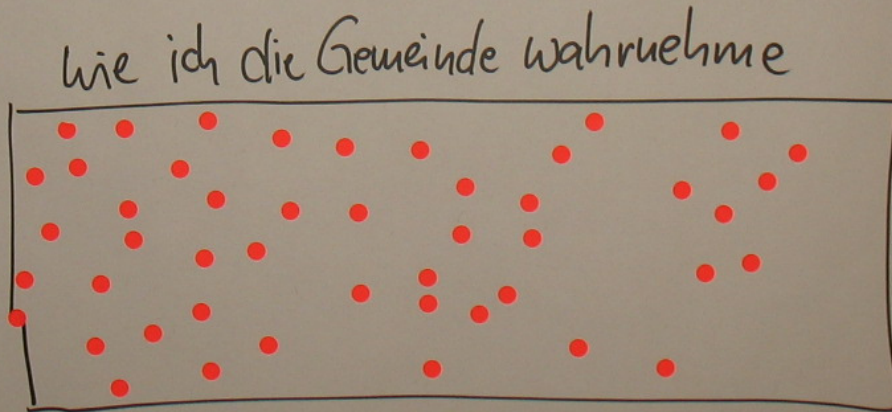 Wie ich die Gemeinde wahrnehme